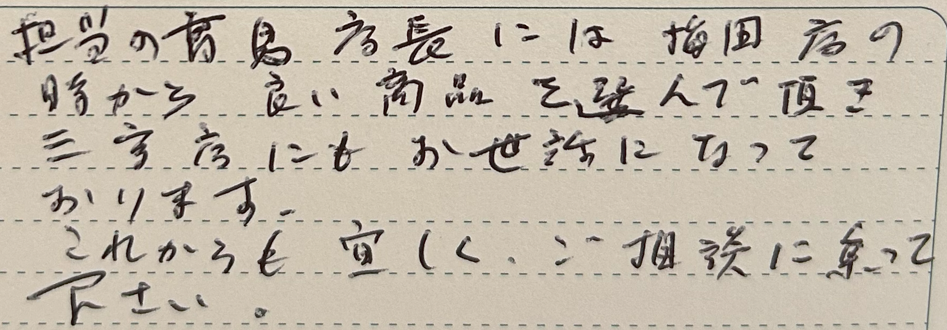 担当の高島店長には梅田店の
時から良い商品を選んで頂き
三宮店にもお世話になって
おります。
これからも宜しく、ご相談に乗って
下さい。